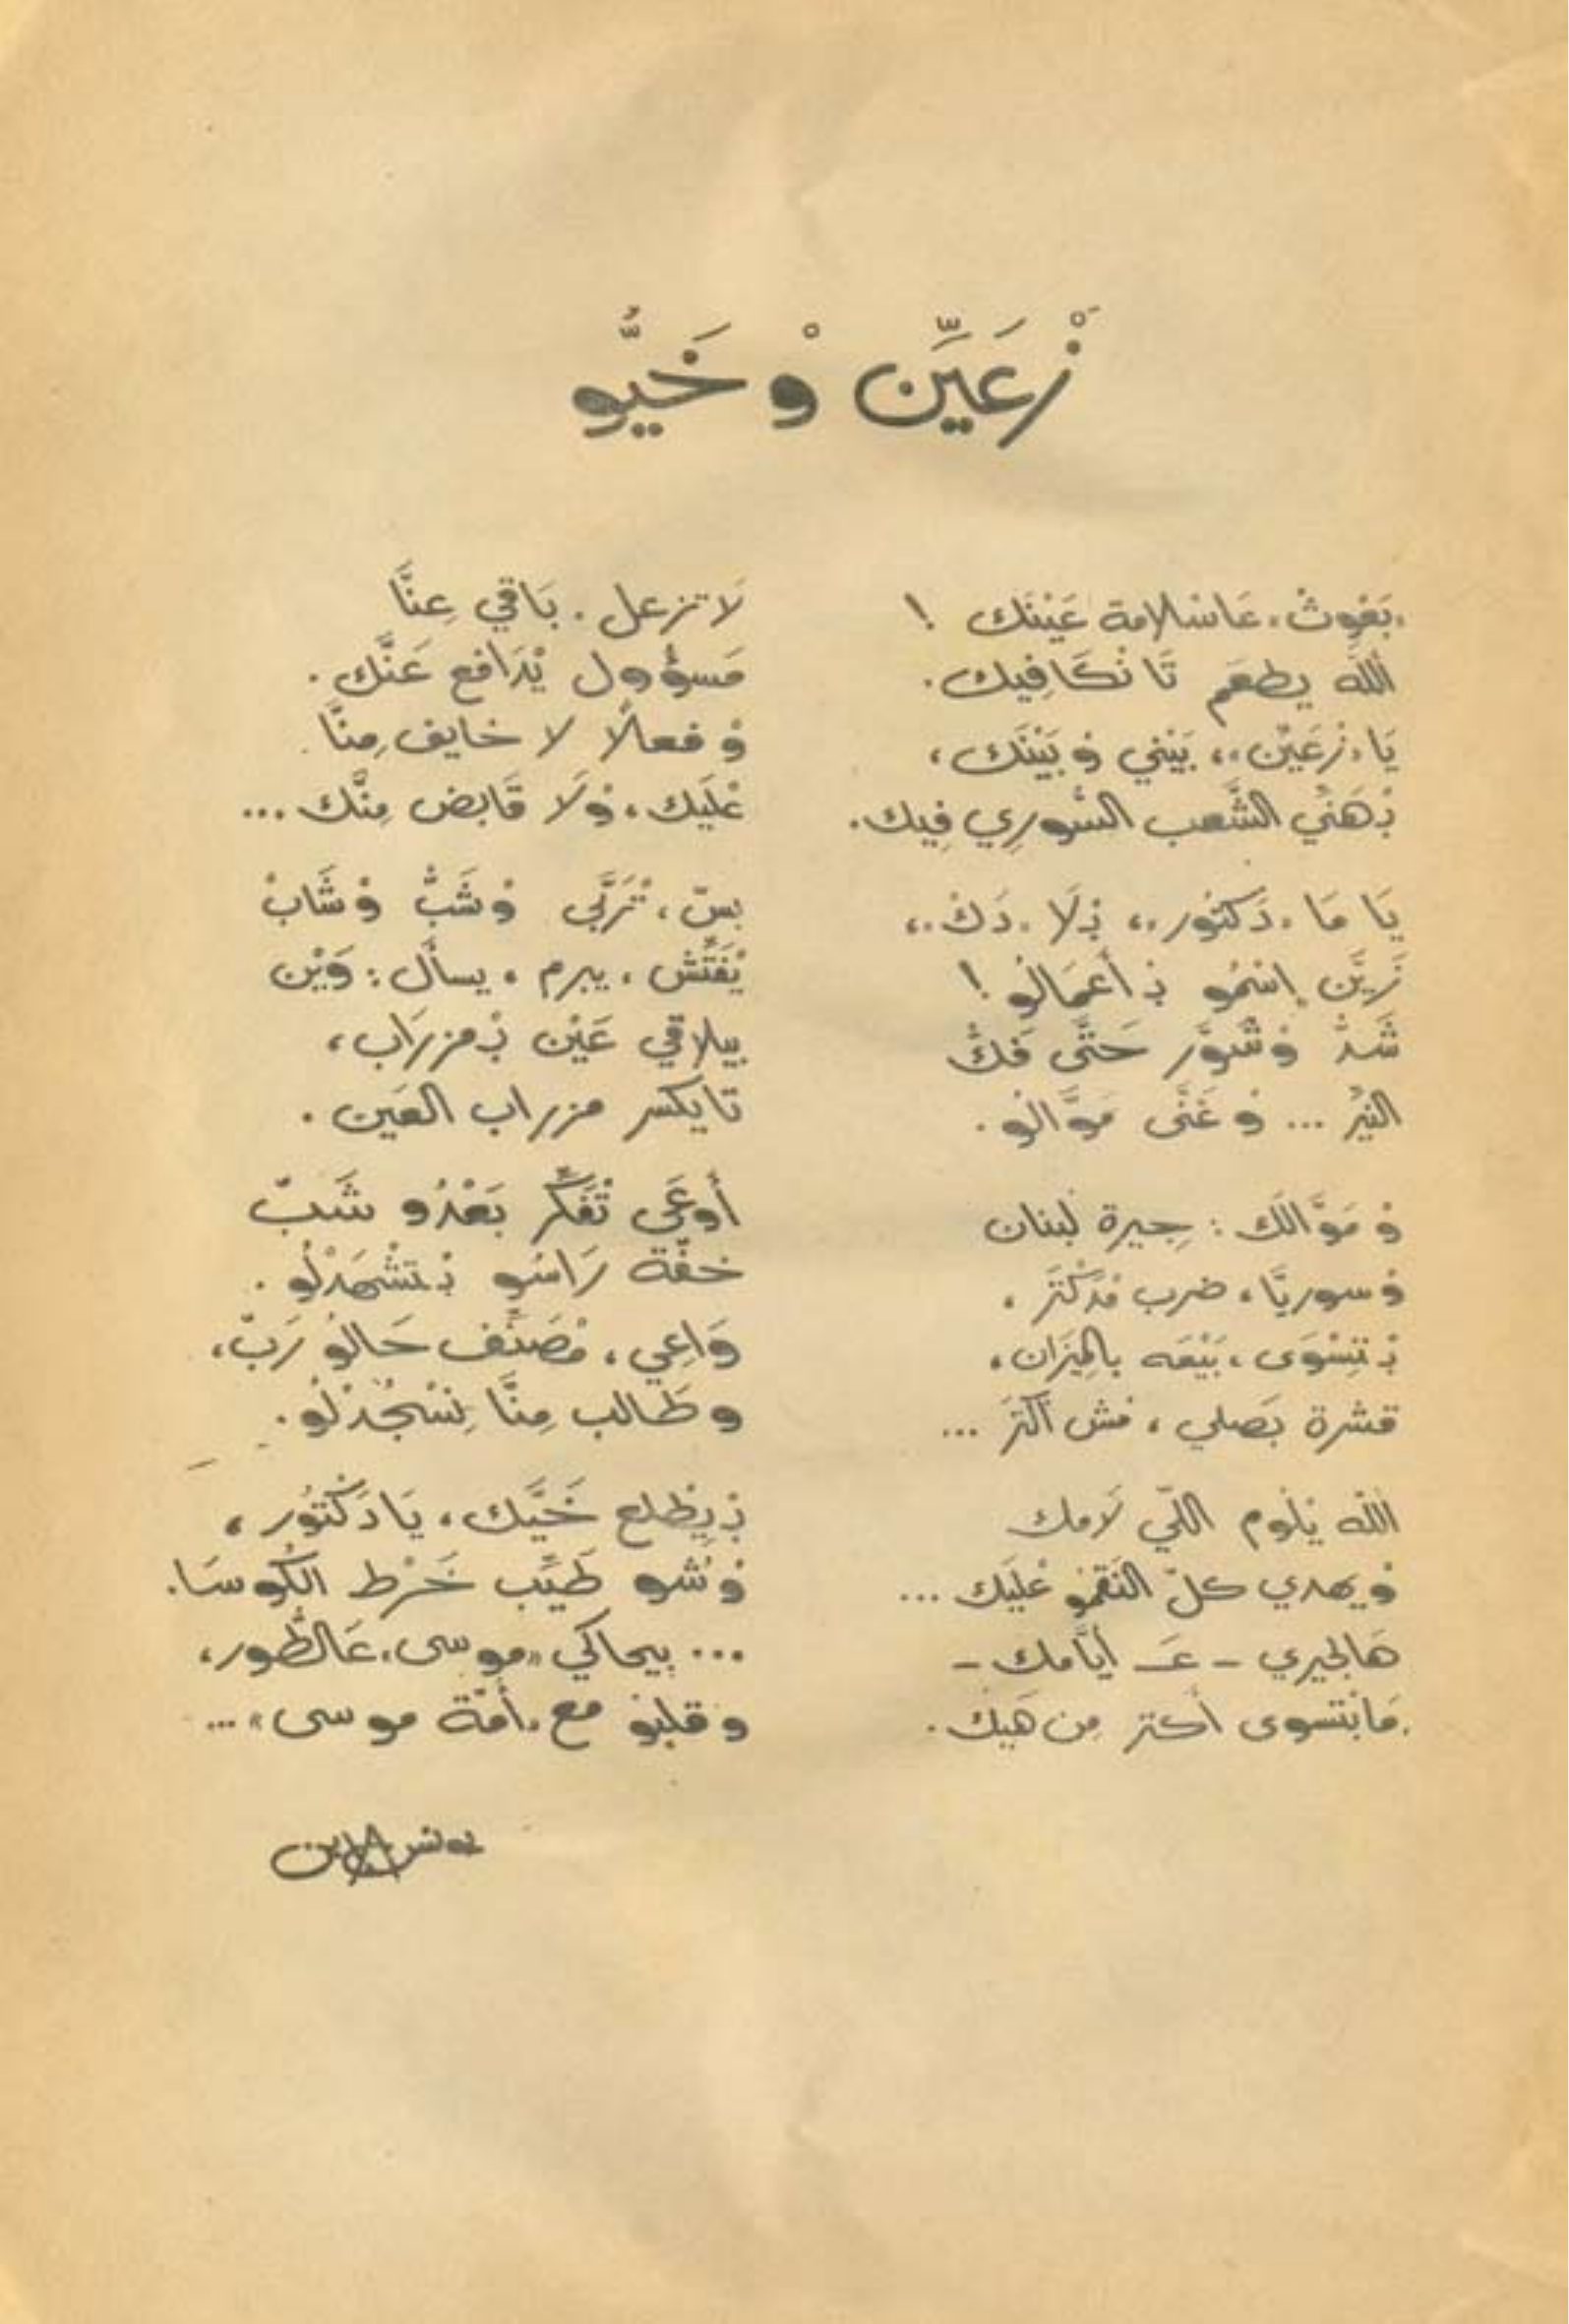 زْعَيِّن وْ خَيُّو
«بَغوِث» عَاسلامة عَيْنَك !
اللّه يطعَم تَا نْكَافِيك.
يَا «زْعَيّن»، بَيْني وْ بَيْنَك،
بْهَنّي الشَّعب السّورِي فِيك.
يَا مَا «دَكتُور»، بْلَا «دَكْ»،
زَيَّن إسمُو بْ أعمَالُو !
شَدْ وْ شَوَّر حَتَّى فَكْ
النِيرْ ... وْ غَنَّى مَوَّالُو.
وْ مَوَّالَك : جِيرة لبنان
وْ سوريَّا، ضرب مْدَكْتَر،
بْتِسْوَى، بَيْعَه بالمِيزَان،
قشرة بَصلي، مْش أكتَر ...
اللّه يْلُوم اللّي لَامك
وْ يهدي كلّ النَقمو عْلَيك ...
هَالجيري - عَـ أيَّامك -
مَابْتسوى أكتر مِن هَيك.
لَا تزعل. بَاقي عِنَّا
مَسؤُول يْدَافع عَنَّك.
وْ فعلاً لا خايف مِنَّا
عْلَيك، وْلَا قَابض مِنَّك ...
بسّ، تْرَبَّى وْ شَبّْ وْ شَابْ
يْفَتِّش، يبرم، يسأل : وَيْن
بيلاقي عَيْن بْمزرَاب،
تا يكسر مزراب العَين.
أوعَى تْفَكِّر بَعْدُو شَبّ
خفّة رَاسُو بْتشْهَدْلُو.
وَاعِي، مْصَنَّف حَالُو رَبّ،
و طَالب مِنَّا نِسْجُدْلُو.
بْيِطْلع خَيَّك، يَا دَكْتُور،
وْ شو طَيِّب خَرْط الكُوسَا.
... بيحاكي «موسى» عَالطُّور،
و قلبو مع «أمّة موسى» ...
يونس الابن